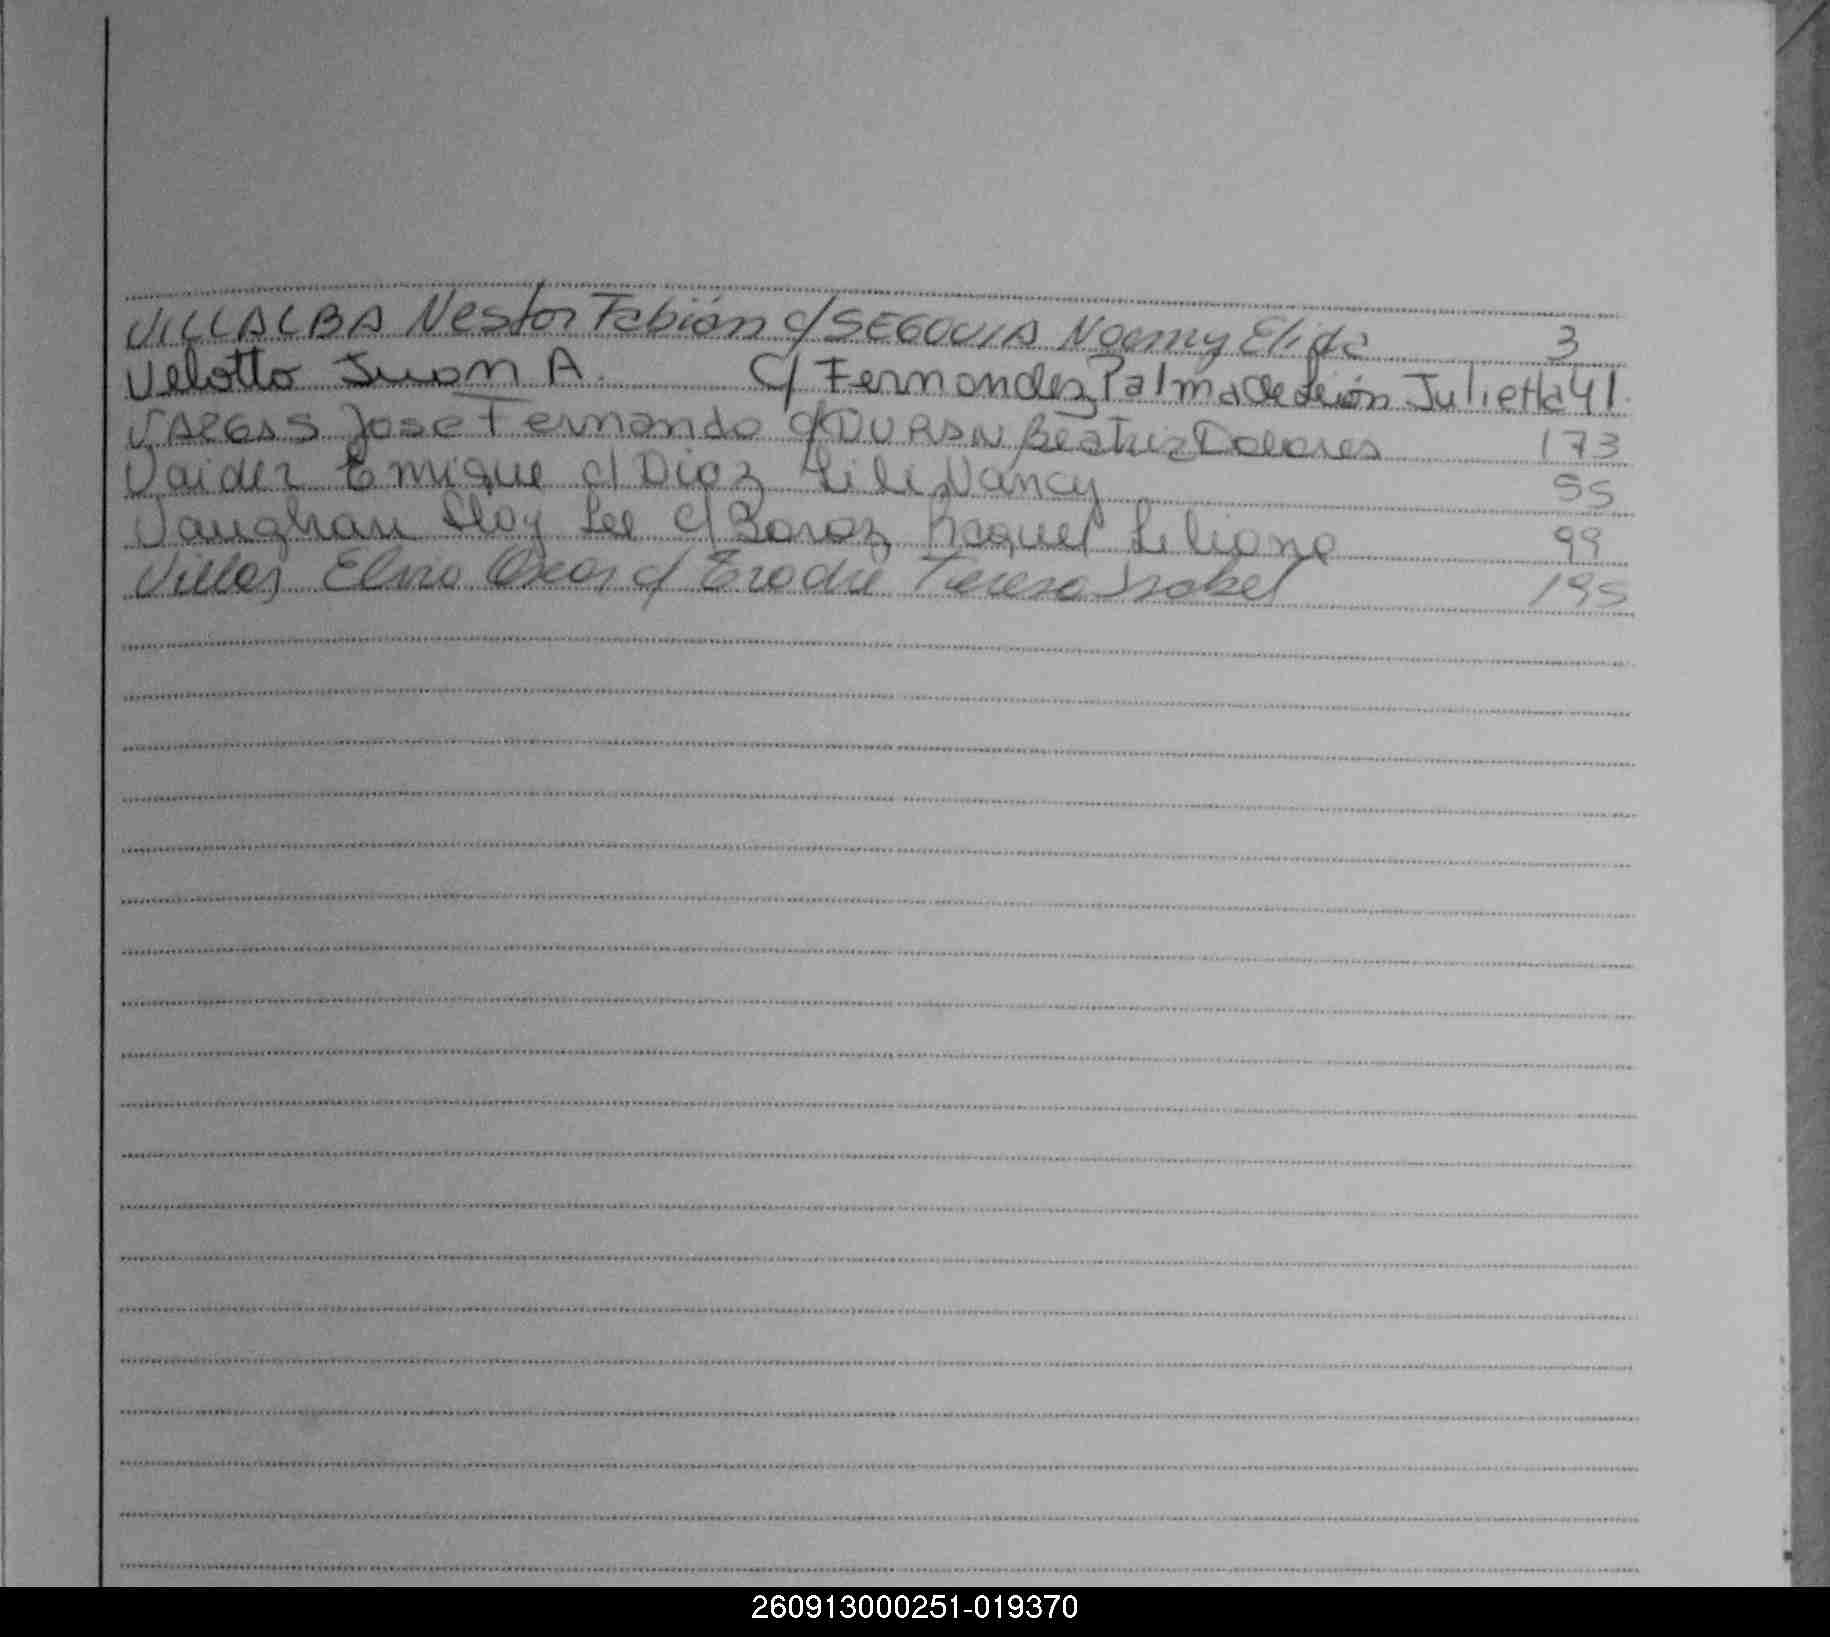 VILLALBA Nestor Fabián c/ SEGOVIA Noemy Elida 3
Velotto Juan A. c/ Fernandez Palma de León Julieta 41
VARGAS Jose Fernando c/ DURAN Beatriz Dolores 173
Vaider Enrique c/ Diaz Lili Nancy 55
Vaughan Lloy Lee c/ Raquel Liliana 99
Elvio Oscar c/ Teresa Isabel 195
260913000251-019370